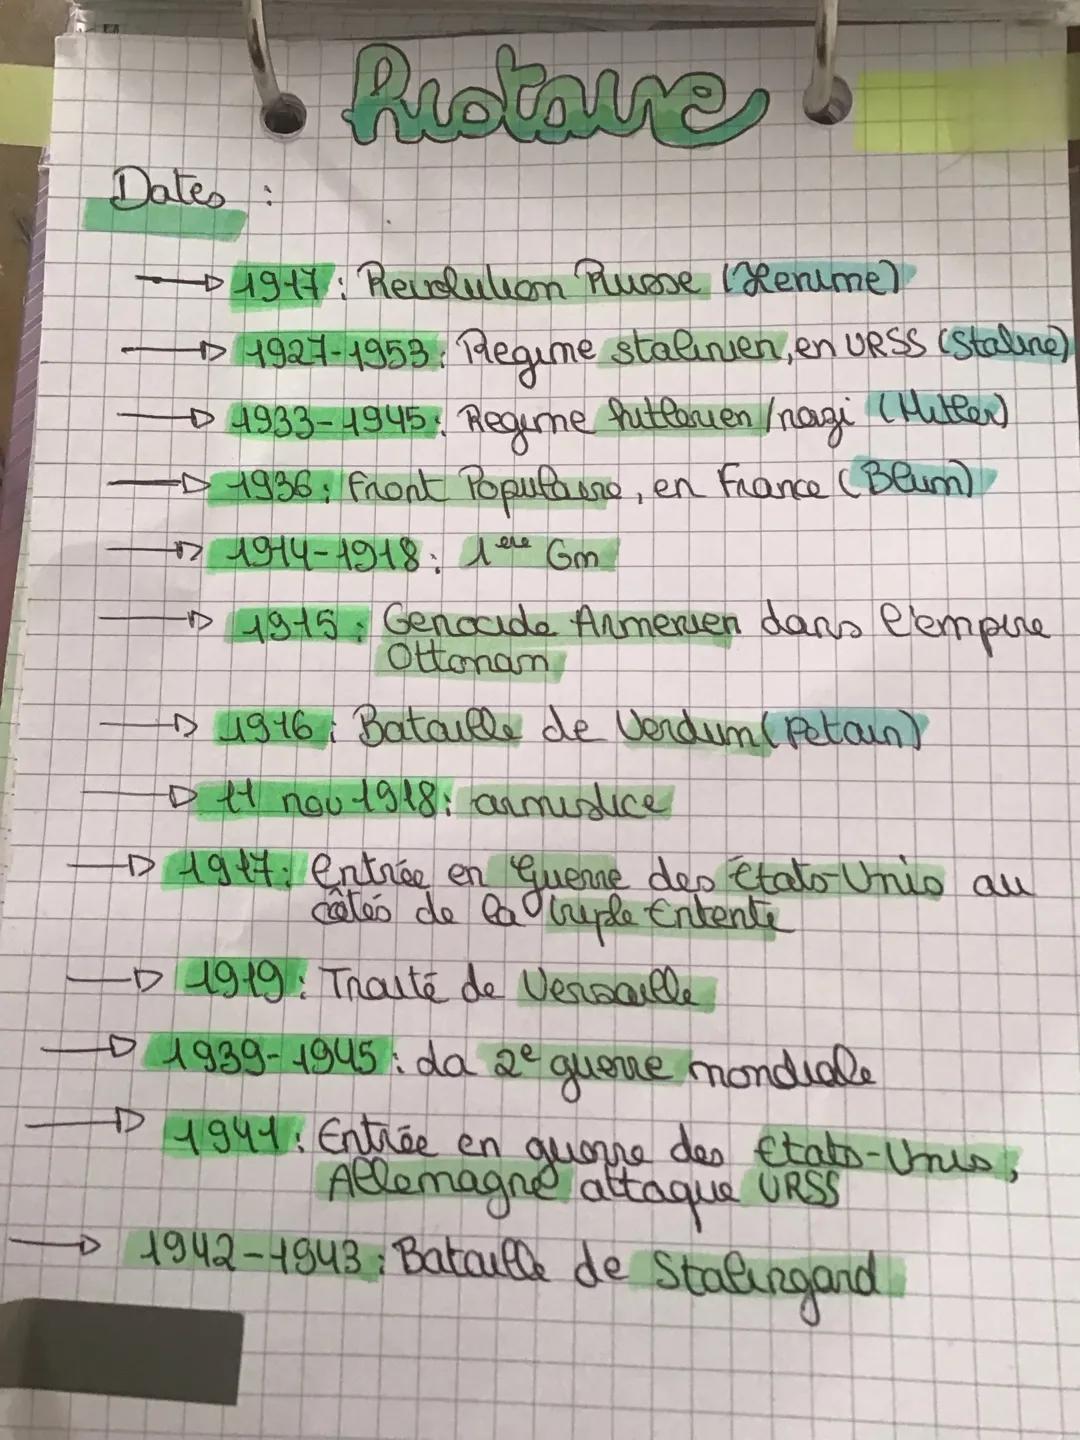 Histoire
Dates :
1917 : Revolution Russe (Lenine)
1927-1953 : Regime stalinien, en URSS (Staline)
1933-1945 : Regime hitlerien/nazi (Hitler)
1936 : Front Populaire, en France (Blum)
1914-1918 : 1ère Gm
1915 : Genocide Armenien dans l'empire
Ottoman
1916 : Bataille de Verdum (Petain)
11 nov 1918 : armistice
1917 : entrée en Guerre des États-Unis au
côtés de la triple Entente
1919 : Traité de Versaille
1939-1945 : la 2e guerre mondiale
1941 : Entrée en guerre des Etats-Unis,
Allemagne attaque URSS
1942-1943 : Bataille de Stalingard